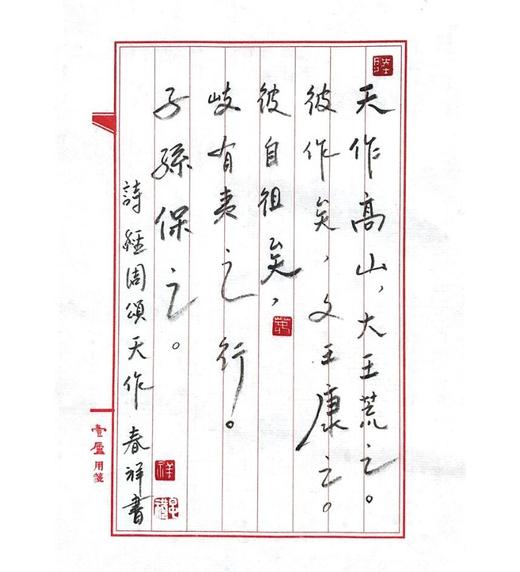 天作高山，大王荒之。
彼作矣，文王康之。
彼自徂矣，
岐有夷之行。
子孫保之。
詩經周頌天作 春祥書
祥
用箋